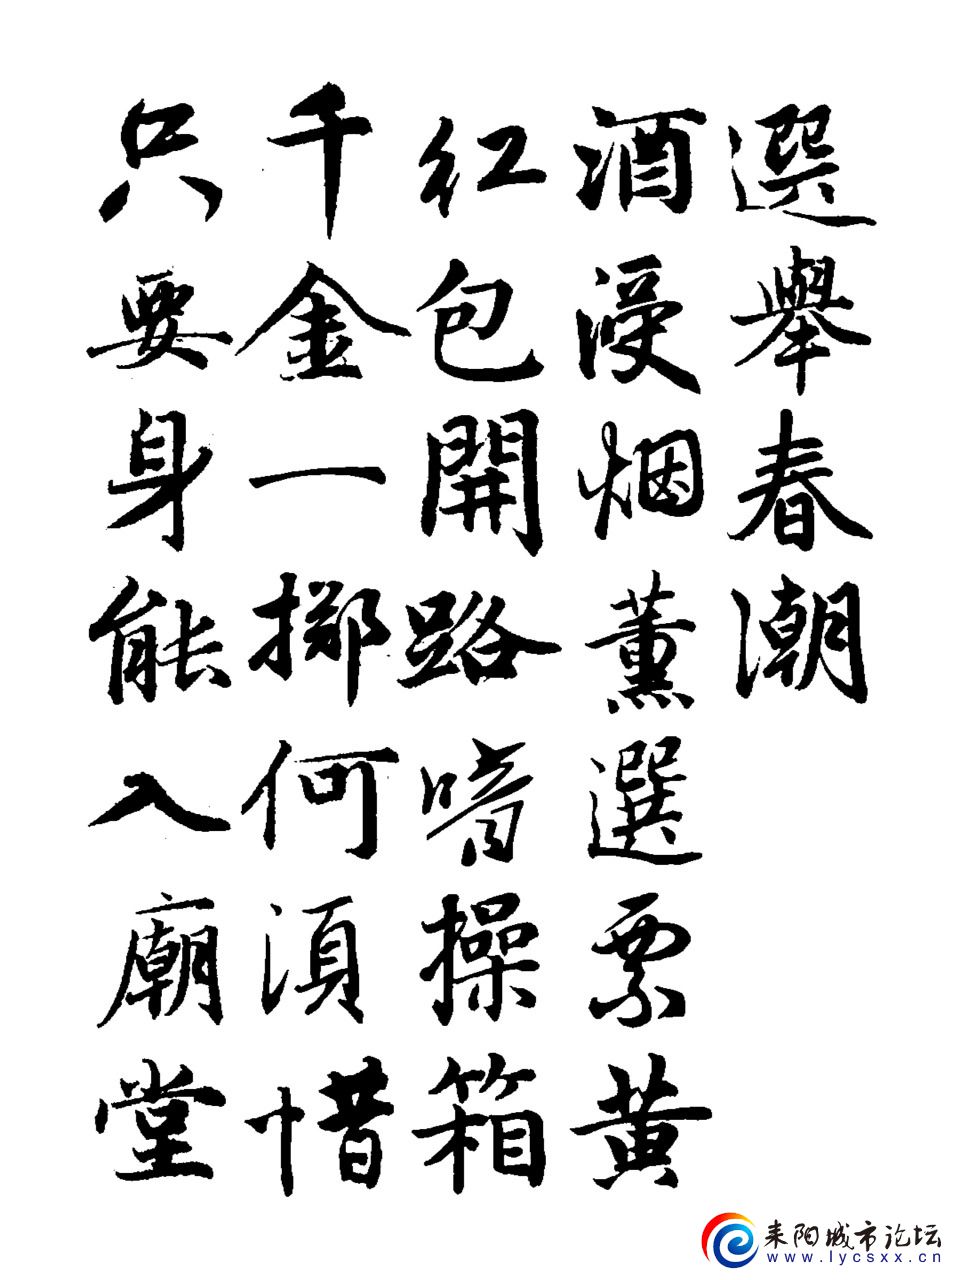 選舉春潮
酒浸烟薰選票黄
红包開路暗操箱
千金一掷何須惜
只要身能入廟堂
耒阳城市论坛
www.lycsxx.cn